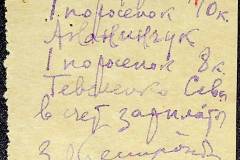 1 поросенок 10к.
Ананичук
1 поросенок 8к.
Тевененко
в счет зарплаты
3